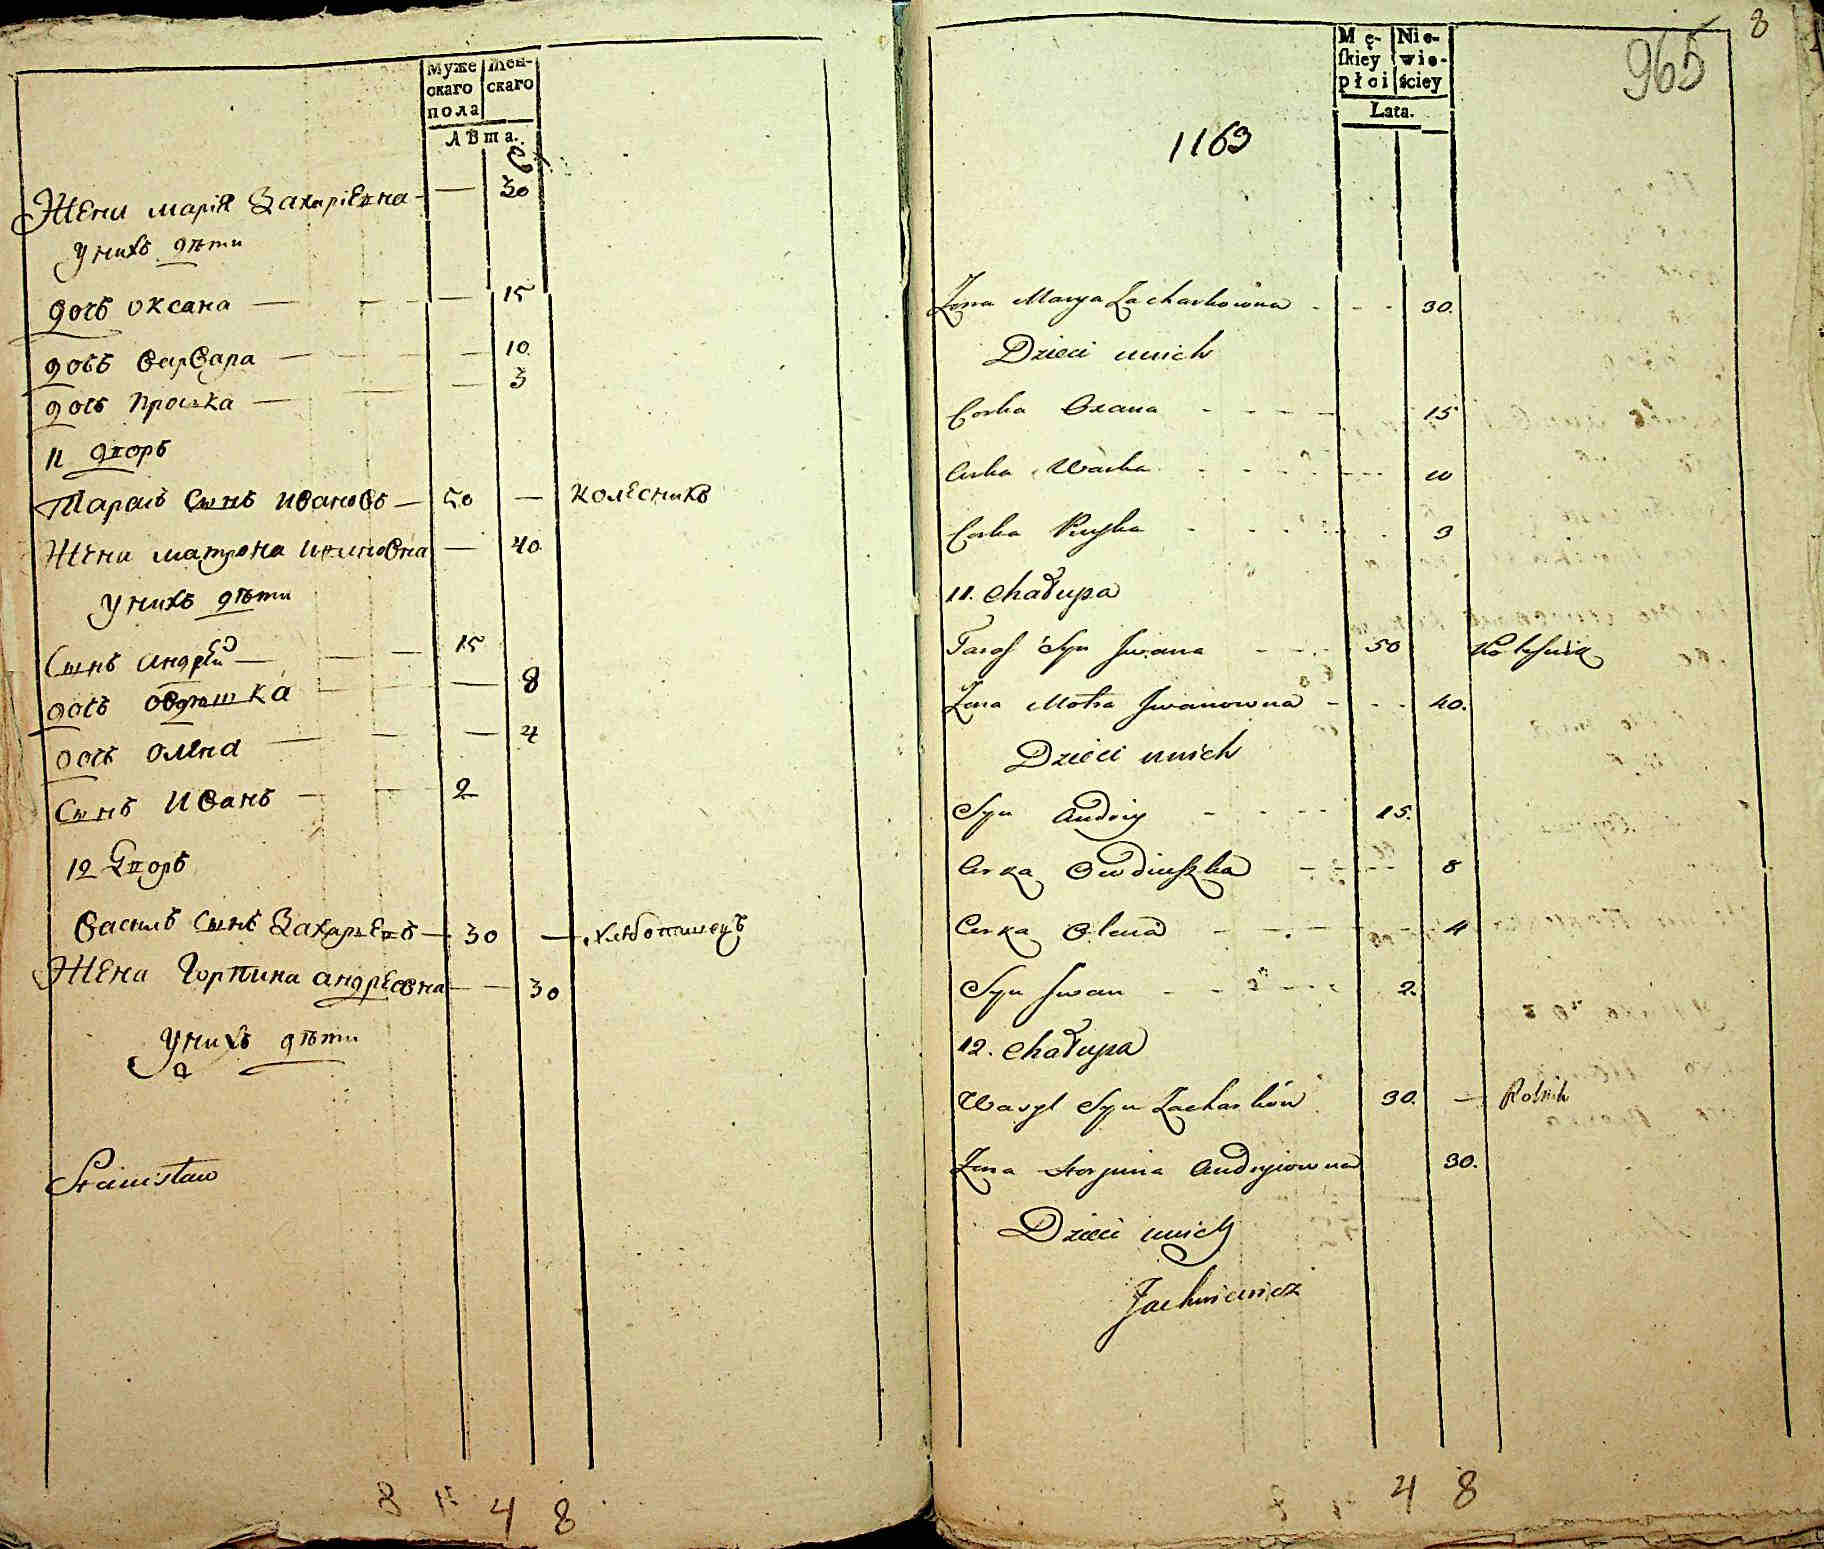 Муже скаго пола
Жен- скаго
Лѣта.
Жена марія Захаріевна — 30
Унихъ дѣти
дочь Оксана — 15
дочь варвара — 10
дочь Проська — 3
11 дворъ
Тарасъ Сынъ Ивановъ — 50 — колесникъ
Жена матрона Ивановна — 40
Унихъ дѣти
Сынъ андрей — 15
дочь Овдюшка — 8
дочь Олена — 4
Сынъ Иванъ — 2
12 Дворъ
василь Сынъ Захарьевъ — 30 — хлѣбопашецъ
Жена Горпина андреевна — 30
Унихъ дѣти
Stanisław
4 8
8
965
Mę- skiey płci
Nie- wie- ściey
Lata.
1163
Zona Marya Zacharkowna - - - 30.
Dzieci unich
Corka Oxana - - - - 15
Curka Warka - - - - 10
Corka Pruska - - - - 3
11. Chałupa
Taras Syn Jwana - - - 50 Kolesnik
Zona Motra Jwanowna - - - 40.
Dzieci unich
Syn Andriy - - - - 15.
Curka Owdiuszka - - - 8
Curka Olena - - - - 4
Syn Jwan - - - - 2.
12. Chałupa
Wasyl Syn Zacharków 30. — Rolnik
Zona Horpina Andryiowna 30.
Dzieci unich
Jachniewicz
4 8